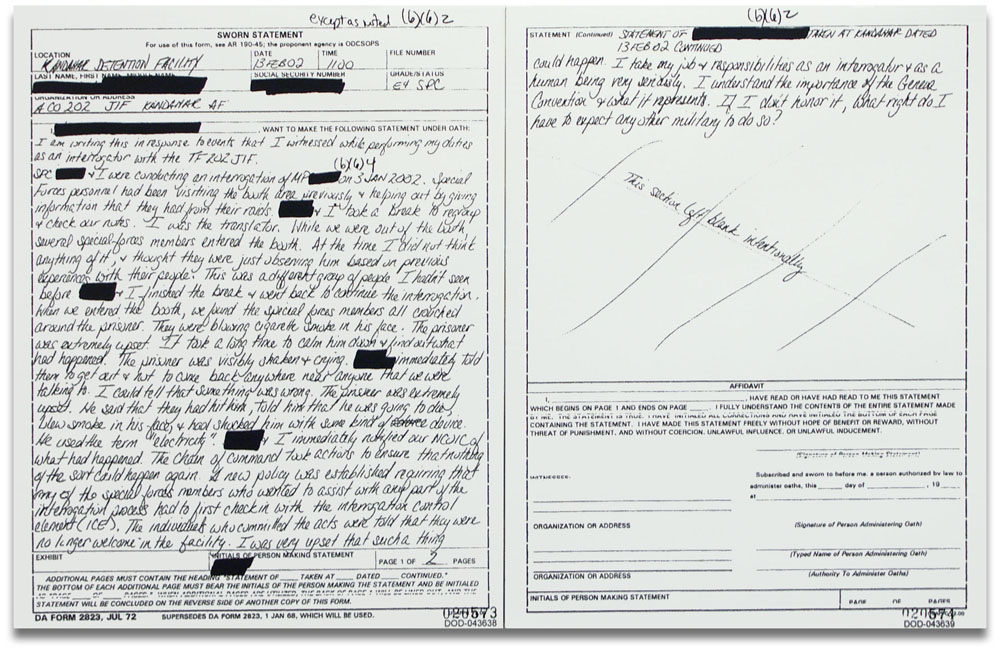 except as noted (b)(6)2
SWORN STATEMENT
For use of this form, see AR 190-45; the proponent agency is ODCSOPS
LOCATION
KANDAHAR DETENTION FACILITY
DATE
13 FEB 02
TIME
1100
FILE NUMBER
LAST NAME, FIRST NAME, MIDDLE NAME
SOCIAL SECURITY NUMBER
GRADE/STATUS
E4 SPC
ORGANIZATION OR ADDRESS
A CO 202 JIF KANDAHAR AF
I, , WANT TO MAKE THE FOLLOWING STATEMENT UNDER OATH:
I am writing this in response to events that I witnessed while performing my duties
as an interrogator with the TF 202 JIF.
(b)(6)4
SPC & I were conducting an interrogation of on 3 JAN 2002. Special
Forces personnel had been visiting the booth area previously & helping out by giving
information that they had from their raids. & I took a break to regroup
& check our notes. I was the translator. While we were out of the booth
several special forces members entered the booth. At the time I did not think
anything of it, & thought they were just observing him based on previous
experiences with their people. This was a different group of people I hadn't seen
before & I finished the break & went back to continue the interrogation.
When we entered the booth, we found the special forces members all crouched
around the prisoner. They were blowing cigarette smoke in his face. The prisoner
was extremely upset. It took a long time to calm him down & find out what
had happened. The prisoner was visibly shaken & crying. immediately told
them to get out & not to come back anywhere near anyone that we were
talking to. I could tell that something was wrong. The prisoner was extremely
upset. He said that they had hit him, told him that he was going to die,
blew smoke in his face, & had shocked him with some kind of device.
He used the term "electricity." & I immediately notified our NCOIC of
what had happened. The chain of command took actions to ensure that nothing
of the sort could happen again. A new policy was established requiring that
any of the special forces members who wanted to assist with any part of the
interrogation process had to first check in with the interrogation control
element (ICE). The individuals who committed the acts were told that they were
no longer welcome in the facility. I was very upset that such a thing
EXHIBIT
INITIALS OF PERSON MAKING STATEMENT
PAGE 1 OF 2 PAGES
ADDITIONAL PAGES MUST CONTAIN THE HEADING "STATEMENT OF TAKEN AT DATED CONTINUED."
THE BOTTOM OF EACH ADDITIONAL PAGE MUST BEAR THE INITIALS OF THE PERSON MAKING THE STATEMENT AND BE INITIALED
STATEMENT WILL BE CONCLUDED ON THE REVERSE SIDE OF ANOTHER COPY OF THIS FORM.
DA FORM 2823, JUL 72
SUPERSEDES DA FORM 2823, 1 JAN 68, WHICH WILL BE USED.
020573
DOD-043638
(b)(6)2
STATEMENT (Continued) STATEMENT OF TAKEN AT KANDAHAR DATED
13 FEB 02 CONTINUED
could happen. I take my job & responsibilities as an interrogator & as a
human being very seriously. I understand the importance of the Geneva
Convention & what it represents. If I don't honor it, what right do I
have to expect any other military to do so?
This section left blank intentionally
AFFIDAVIT
I, , HAVE READ OR HAVE HAD READ TO ME THIS STATEMENT
WHICH BEGINS ON PAGE 1 AND ENDS ON PAGE . I FULLY UNDERSTAND THE CONTENTS OF THE ENTIRE STATEMENT MADE
BY ME. THE STATEMENT IS TRUE. I HAVE INITIALED ALL CORRECTIONS AND HAVE INITIALED THE BOTTOM OF EACH PAGE
CONTAINING THE STATEMENT. I HAVE MADE THIS STATEMENT FREELY WITHOUT HOPE OF BENEFIT OR REWARD, WITHOUT
THREAT OF PUNISHMENT, AND WITHOUT COERCION, UNLAWFUL INFLUENCE, OR UNLAWFUL INDUCEMENT.
(Signature of Person Making Statement)
WITNESSES:
Subscribed and sworn to before me, a person authorized by law to
administer oaths, this day of , 19
at
ORGANIZATION OR ADDRESS
(Signature of Person Administering Oath)
(Typed Name of Person Administering Oath)
ORGANIZATION OR ADDRESS
(Authority To Administer Oaths)
INITIALS OF PERSON MAKING STATEMENT
PAGE OF PAGES
020574
DOD-043639